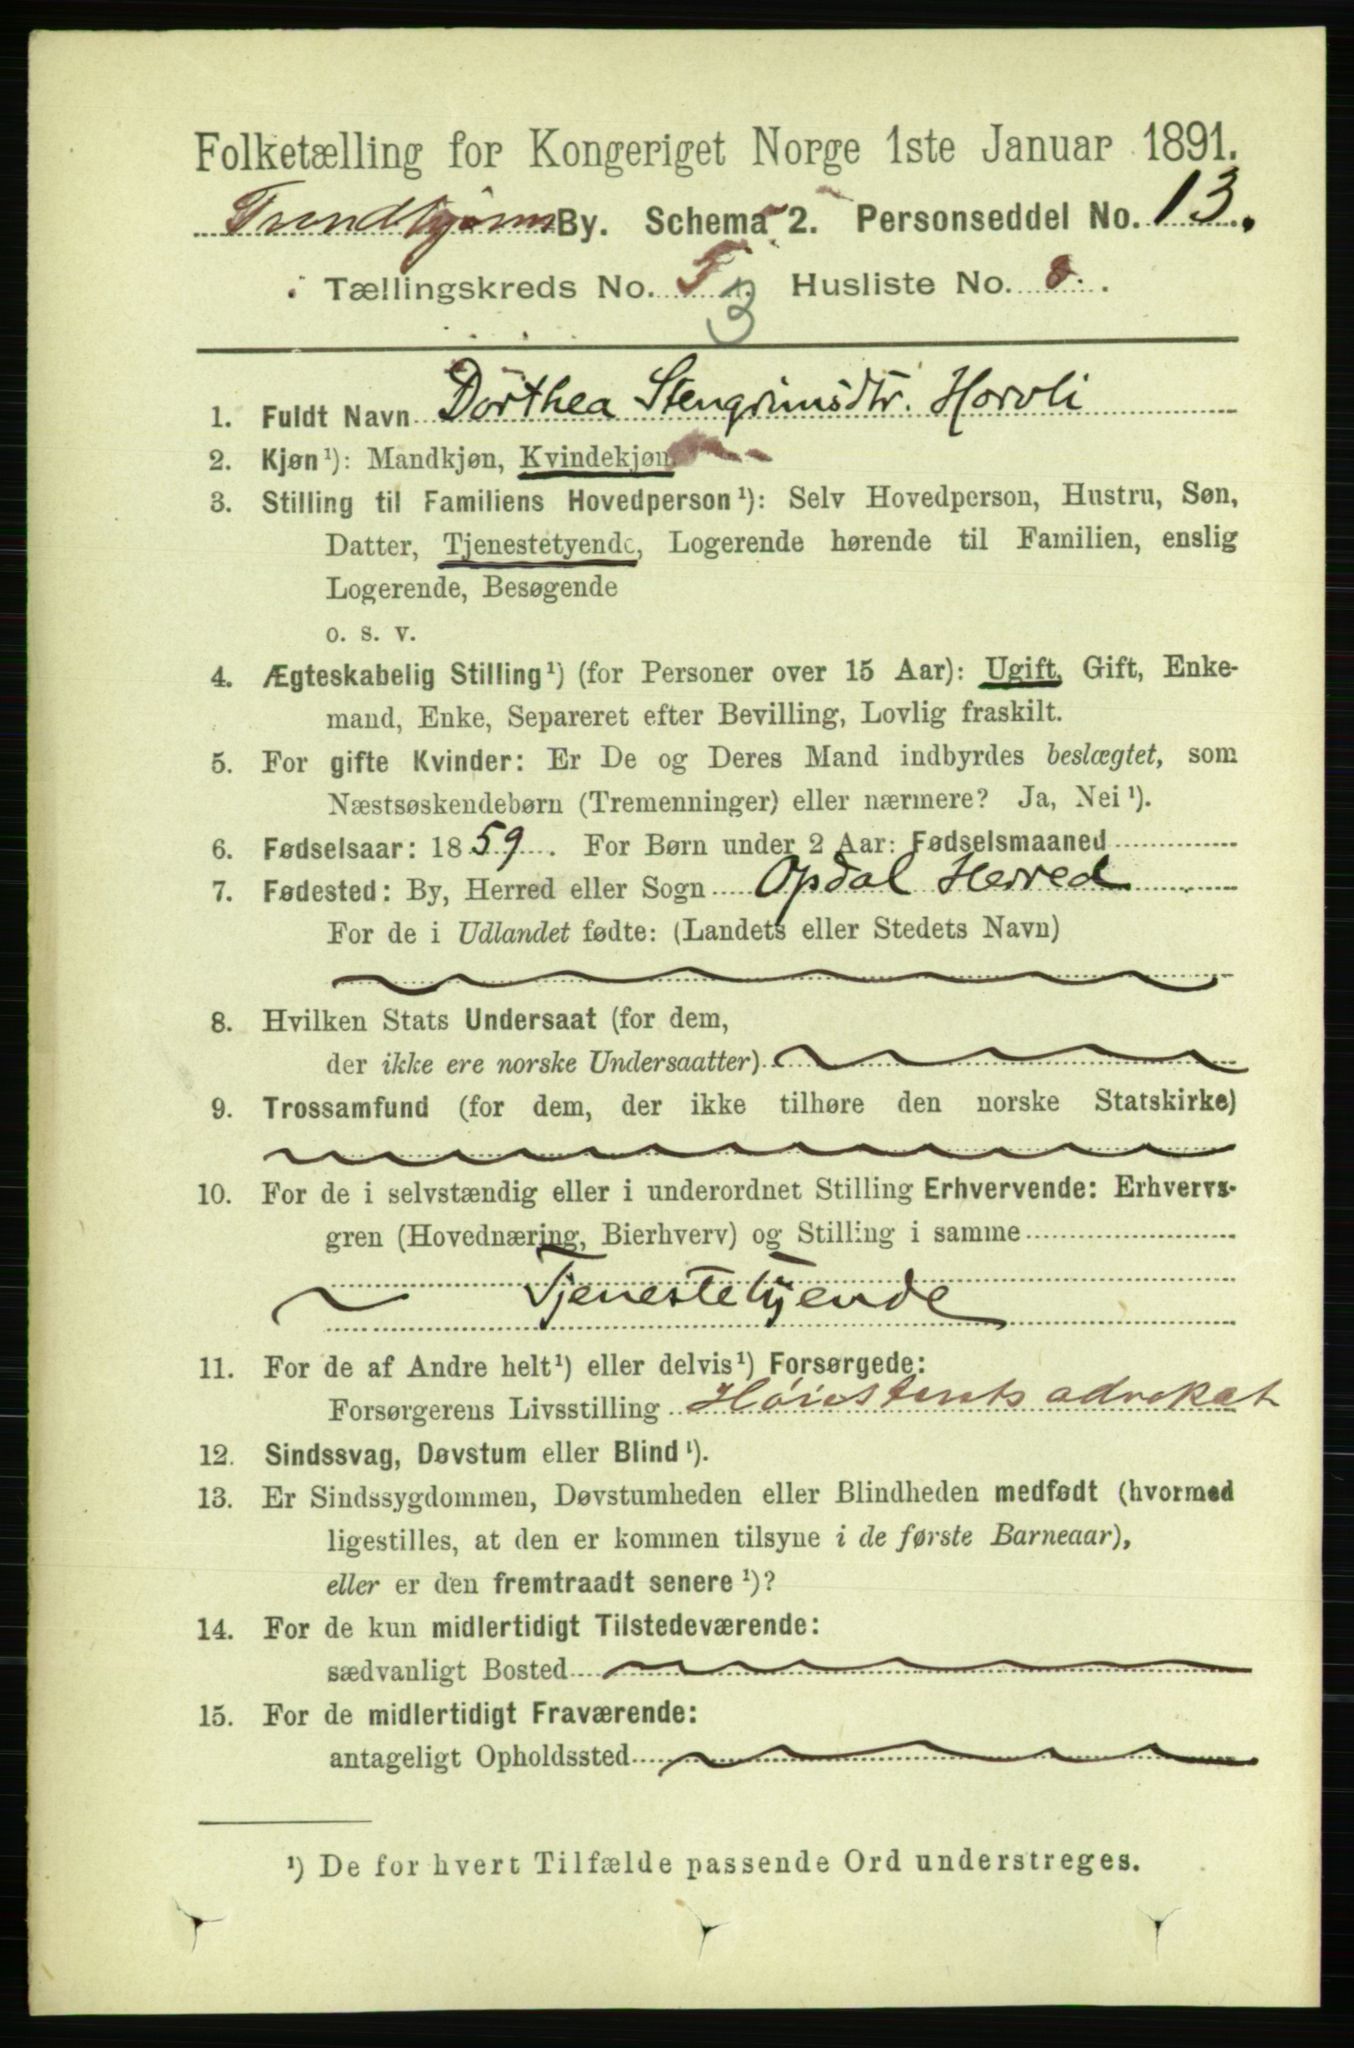 Folketælling for Kongeriget Norge 1ste Januar 1891.
Trondhjem By. Schema 2. Personseddel No. 13.
Tællingskreds No. 3 Husliste No. 8.
1. Fuldt Navn Dorthea Stengrimsdtr. Horvli
2. Kjøn ¹): Mandkjøn, Kvindekjøn
3. Stilling til Familiens Hovedperson ¹): Selv Hovedperson, Hustru, Søn,
Datter, Tjenestetyende, Logerende hørende til Familien, enslig
Logerende, Besøgende
o. s. v.
4. Ægteskabelig Stilling ¹) (for Personer over 15 Aar): Ugift, Gift, Enke-
mand, Enke, Separeret efter Bevilling, Lovlig fraskilt.
5. For gifte Kvinder: Er De og Deres Mand indbyrdes beslægtet, som
Næstsøskendebørn (Tremenninger) eller nærmere? Ja, Nei ¹).
6. Fødselsaar: 1859. For Børn under 2 Aar: Fødselsmaaned
7. Fødested: By, Herred eller Sogn Opdal Herred
For de i Udlandet fødte: (Landets eller Stedets Navn)
8. Hvilken Stats Undersaat (for dem,
der ikke ere norske Undersaatter)
9. Trossamfund (for dem, der ikke tilhøre den norske Statskirke)
10. For de i selvstændig eller i underordnet Stilling Erhvervende: Erhvervs-
gren (Hovednæring, Bierhverv) og Stilling i samme
Tjenestetyende
11. For de af Andre helt ¹) eller delvis ¹) Forsørgede:
Forsørgerens Livsstilling Høiesteretsadvokat
12. Sindssvag, Døvstum eller Blind ¹).
13. Er Sindssygdommen, Døvstumheden eller Blindheden medfødt (hvormed
ligestilles, at den er kommen tilsyne i de første Barneaar),
eller er den fremtraadt senere ¹)?
14. For de kun midlertidigt Tilstedeværende:
sædvanligt Bosted
15. For de midlertidigt Fraværende:
antageligt Opholdssted
¹) De for hvert Tilfælde passende Ord understreges.